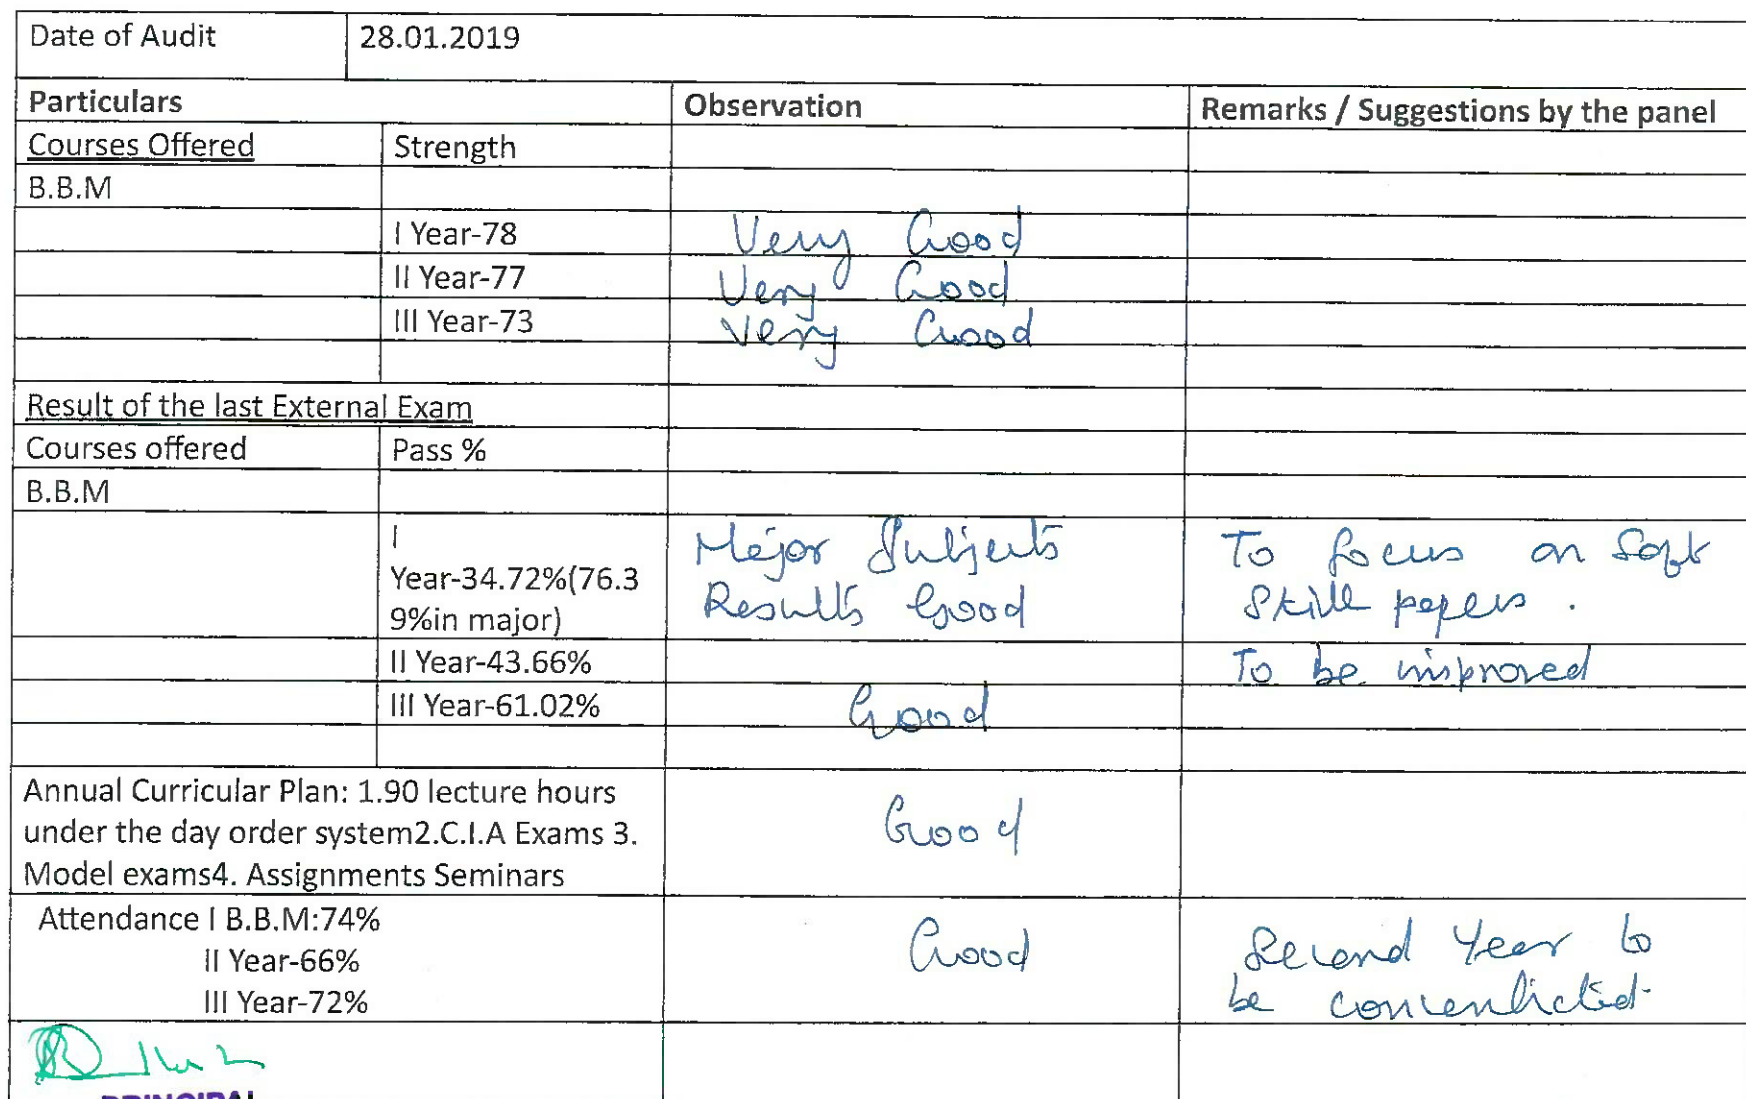 Date of Audit 28.01.2019
Particulars Observation Remarks / Suggestions by the panel
Courses Offered Strength
B.B.M
I Year-78 Very Good
II Year-77 Very Good
III Year-73 Very Good
Result of the last External Exam
Courses offered Pass %
B.B.M
I Major Subjects To focus on Soft
Year-34.72%(76.3 Results Good Skill papers.
9%in major)
II Year-43.66% To be improved
III Year-61.02% Good
Annual Curricular Plan: 1.90 lecture hours
under the day order system2.C.I.A Exams 3. Good
Model exams4. Assignments Seminars
Attendance I B.B.M:74%
II Year-66% Good Second Year to
III Year-72% be concentrated.
PRINCIPAL